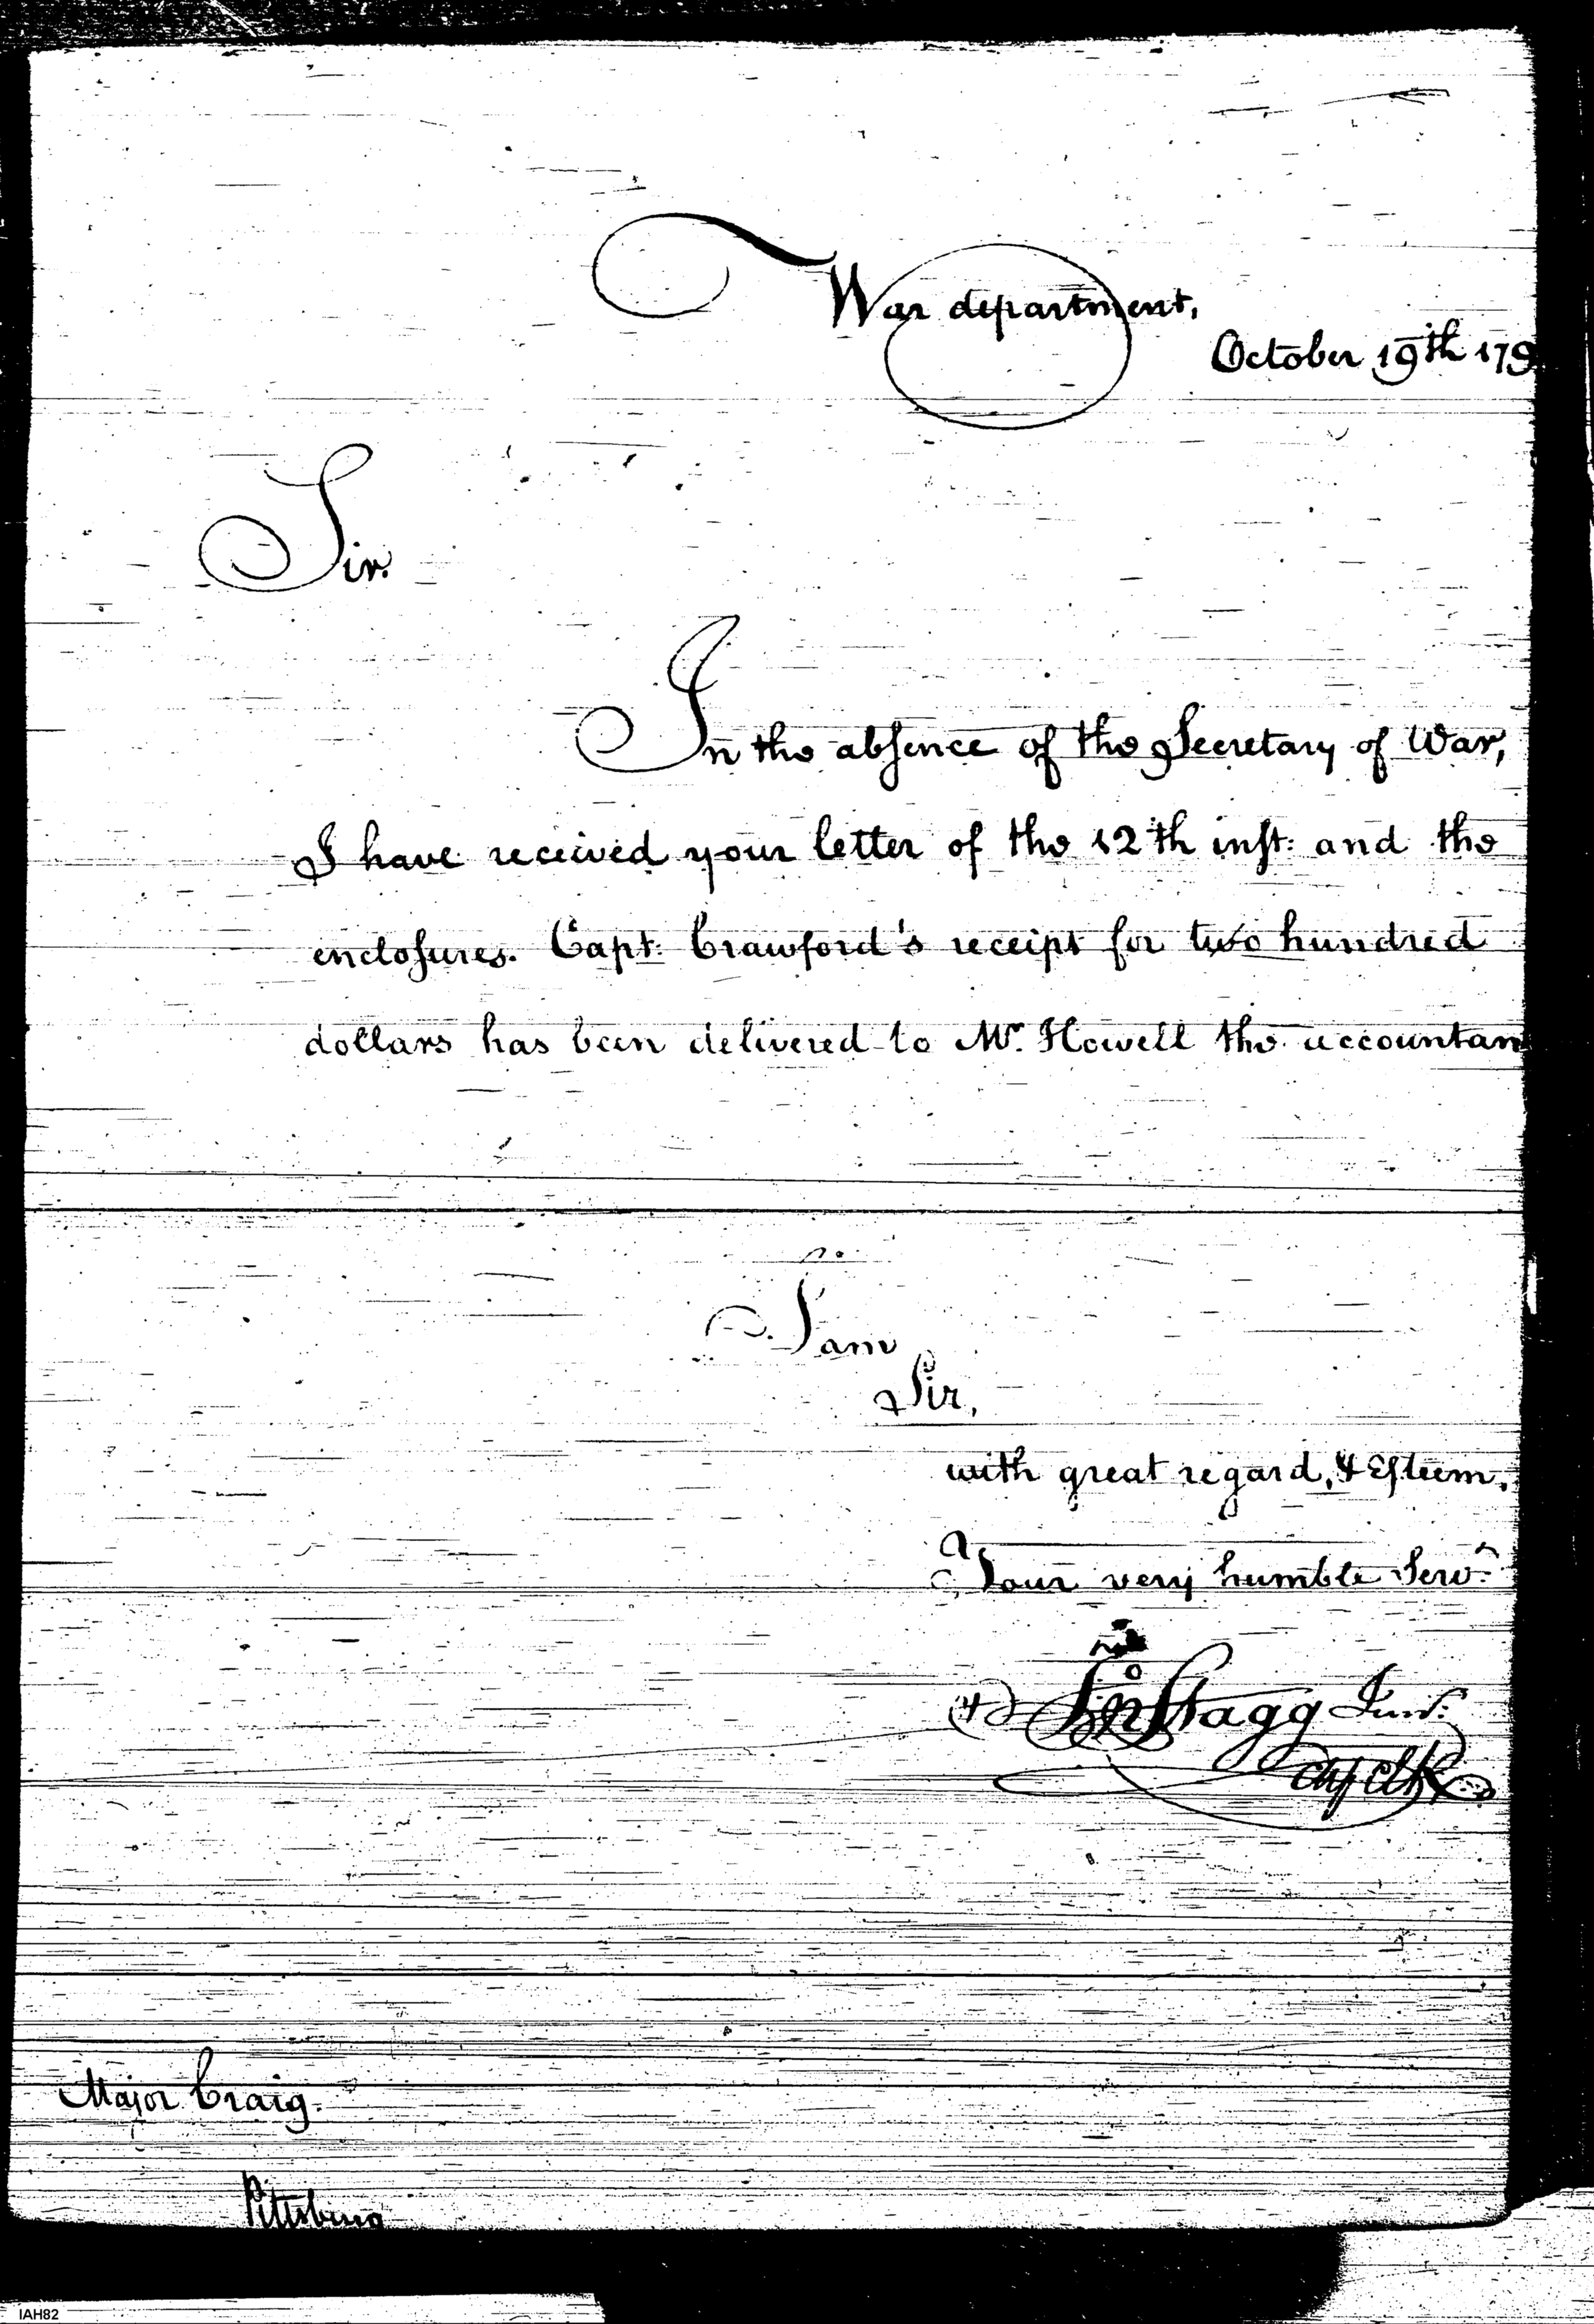 War department,
October 19th 179
Sir.
In the absence of the Secretary of War,
I have received your letter of the 12th inst: and the
enclosures. Capt: Crawford's receipt for two hundred
dollars has been delivered to Mr. Howell the accountan
I am
Sir,
with great regard, & Esteem,
Your very humble Servt
Jno Stagg Junr.
Chf Clk
Major Craig.
Pittsburg
IAH82